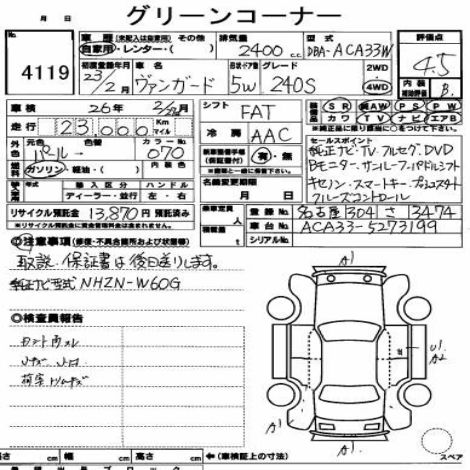 グリーンコーナー
月 日
4119
車歴 (未記入は自家用) その他 排気量 型式 評価点
自家用・レンター・( ) 2400 c.c. DBA-ACA33W 4.5
初度登録年月 車名 形状・ドア数 グレード 2WD 内装
23/2月 ヴァンガード 5W 240S 4WD 補助評価 B
車検 26年 2/ シフト FAT 装備品 SR 純AW PS PW
走行 23,000 Km マイル 冷房 AAC カワ TV ナビ エアB
純正装備品に○をつけて下さい。
外色 元色 パール 色替 カラーNo. 070
セールスポイント
純正ナビ・TV・フルセグ・DVD
Bモニター・サンルーフ・パドルシフト
キセノン・スマートキー・プッシュスタート
クルーズコントロール
燃料 ガソリン・軽油・( )
有・無
輸入区分 ハンドル
ディーラー・並行 左・右
名義変更期限 月 日
リサイクル預託金 13,870 円 預託済み
乗車定員 人
積載量
登録No. 名古屋 304 さ 3474
車台No. ACA33-5273199
シリアルNo.
◎注意事項 (修復・不具合箇所および状態等)
取説、保証書は後日送りします。
純正ナビ型式 NHZN-W60G
◎検査員報告
A1
U1
A2
A1
A1
スペア
長さ cm 幅 cm 高さ cm ←(車検証上の寸法)